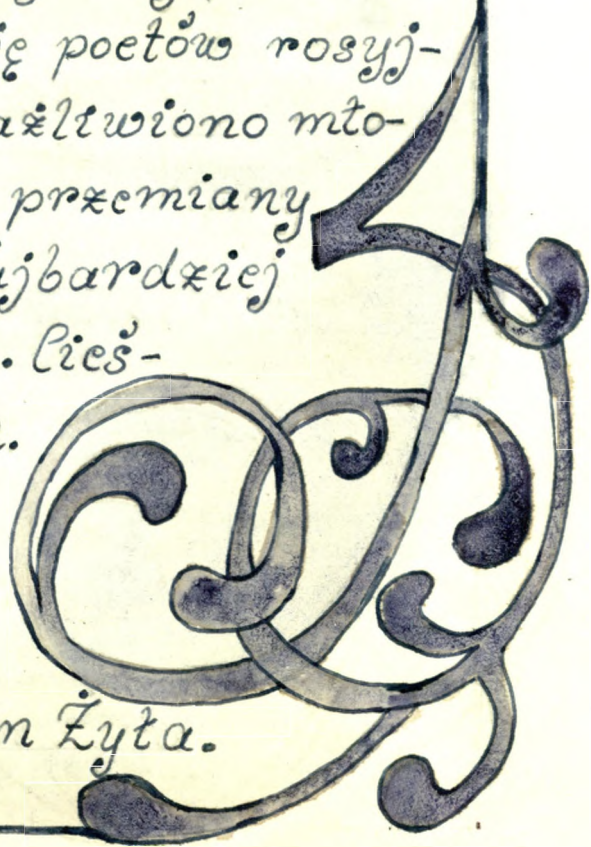 ię poetów rosyj-
ażliwiono mło-
przemiany
ajbardziej
. Cieś-
n Żyła.